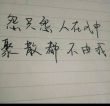 怨只怨人在风中
聚散都不由我